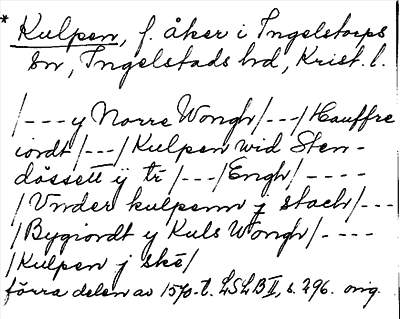 * Kulpen, f. åker i Ingelstorps
sn, Ingelstads hd, Krist. l.
/--- y Norre Wongh/---/Hauffre
iordt/---/Kulpen wid Sten-
dössett ÿ tr/---/Engh/----
/Vnder kulpenn j stach/---
/Bygiordt y Kuls Wongh/----
/Kulpen j skö/
förra delen av 1570-t. LSLB II, s. 296. orig.